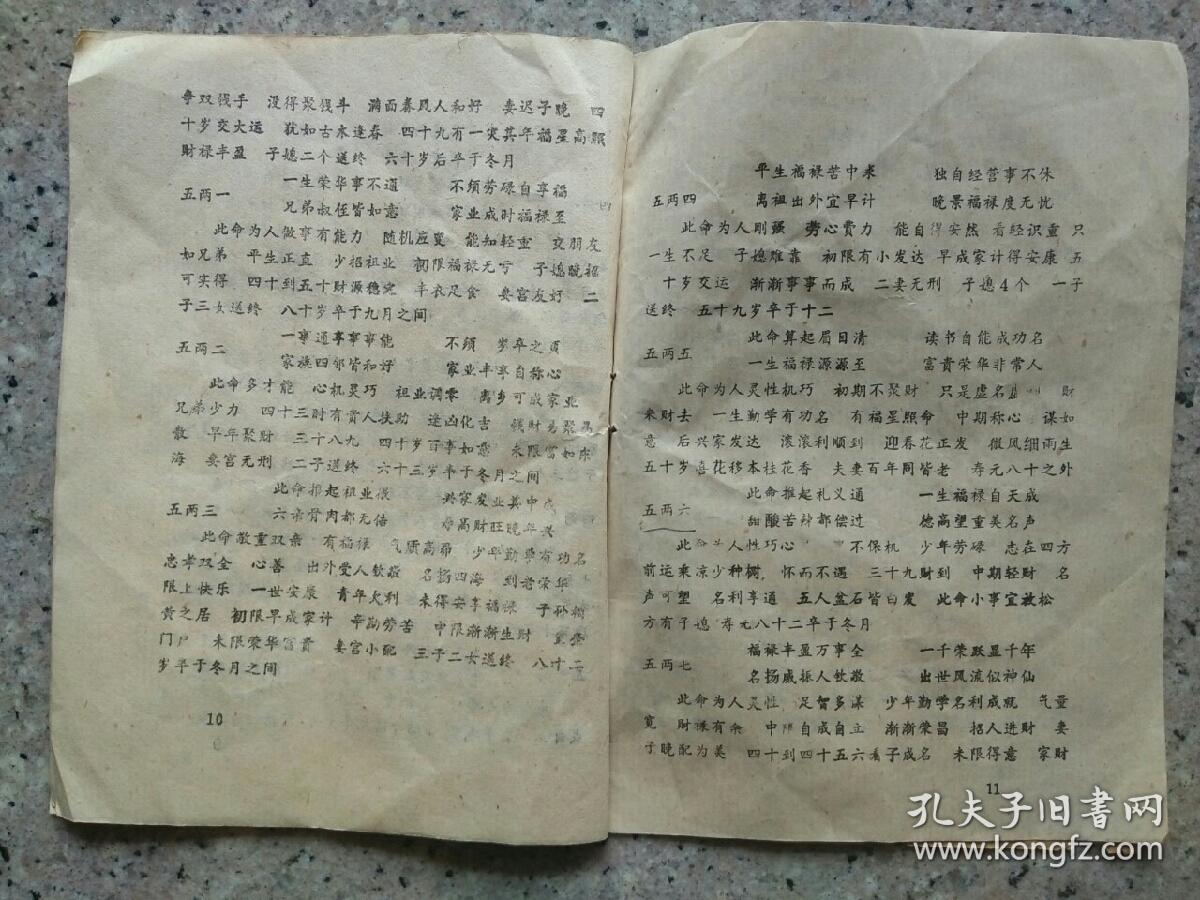 争双钱手 没得聚钱斗 满面春风人和好 妻迟子晚 四
十岁交大运 犹如古木逢春 四十九有一灾其年福星高照
财禄丰盈 子媳二个送终 六十岁后卒于冬月
五两一
一生荣华事不通 不须劳碌自享福
兄弟叔侄皆如意 家业成时福禄至
此命为人做事有能力 随机应变 能知轻重 交朋友
如兄弟 平生正直 少招祖业 初限福禄无亏 子媳晚招
可实得 四十到五十财源稳定 丰衣足食 妻宫友好 二
子三女送终 八十岁卒于九月之间
五两二
一事通享事事能 不须
家族四邻皆和好 家业丰亨自称心
此命多才能 心机灵巧 祖业凋零 离乡可成家业
兄弟少力 四十三时有贵人扶助 逢凶化吉 钱财易聚易
散 早年聚财 三十八九 四十岁百事如意 末限富如东
海 妻宫无刑 二子送终 六十三岁卒于冬月之间
五两三
此命推起祖业微 兴家发业其中成
六亲骨肉都无倚 寿高财旺晚年兴
此命敦重双亲 有福禄 气质高昂 少年勤学有功名
忠孝双全 心善 出外受人钦敬 名扬四海 到老荣华
限上快乐 一世安康 青年欠利 未得安享福禄 子孙
贵之居 初限早成家计 辛勤劳苦 中限渐渐生财
门户 末限荣华富贵 妻宫小配 三子二女送终 八十二
岁卒于冬月之间
10
平生福禄苦中求 独自经营事不休
五两四 离祖出外宜早计 晚景福禄度无忧
此命为人刚强 劳心费力 能自得安然 看经识重 只
一生不足 子媳难靠 初限有小发达 早成家计得安康 五
十岁交运 渐渐事事而成 二妻无刑 子媳4个 一子
送终 五十九岁卒于十二
此命算起眉目清 读书自能成功名
五两五
一生福禄源源至 富贵荣华非常人
此命为人灵性机巧 初期不聚财 只是虚名 财
来财去 一生勤学有功名 有福星照命 中期称心 谋如
意 后兴家发达 滚滚利顺到 迎春花正发 微风细雨生
五十岁喜花移本桂花香 夫妻百年同皆老 寿元八十之外
此命推起礼义通 一生福禄自天成
五两六
甜酸苦辣都偿过 德高望重美名声
此命 人性巧心 不保机 少年劳碌 志在四方
前运乘凉少种树 怀而不遇 三十九财到 中期轻财 名
声可望 名利亨通 五人盆石皆白发 此命小事宜放松
方有子媳 寿元八十二卒于冬月
福禄丰盈万事全 一千荣跃显千年
五两七
名扬威振人钦敬 出世风流似神仙
此命为人灵性 足智多谋 少年勤学名利成就 气量
宽 财禄有余 中限自成自立 渐渐荣昌 招人进财 妻
子晚配为美 四十到四十五六看子成名 末限得意 家财
11
孔夫子旧书网
www.kongfz.com